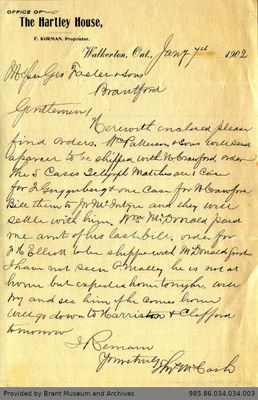 OFFICE OF
The Hartley House,
F. KORMAN, Proprietor.
Walkerton, Ont., Jany 7th 1902
Messrs Geo Foster & Sons
Brantford
Gentlemen
Herewith enclosed please
find orders. Wm Patterson & Sons will send
to be shipped with W Crawford order
The 5 Cases Telegph Matches are 1 Case
for and one Case for W Crawford
Bill them to Mr McIntyre and they will
settle with him. Wm McDonald paid
me amt of his last bill. order for
to be shipped with McDonald Goods
I have not seen O'Malley he is not at
home but expected home tonight. will
try and see him if he comes home
will go down to Harriston & Clifford
tomorrow
I Remain
Yours truly
McCash
Provided by Brant Museum and Archives
985.86.034.034.003